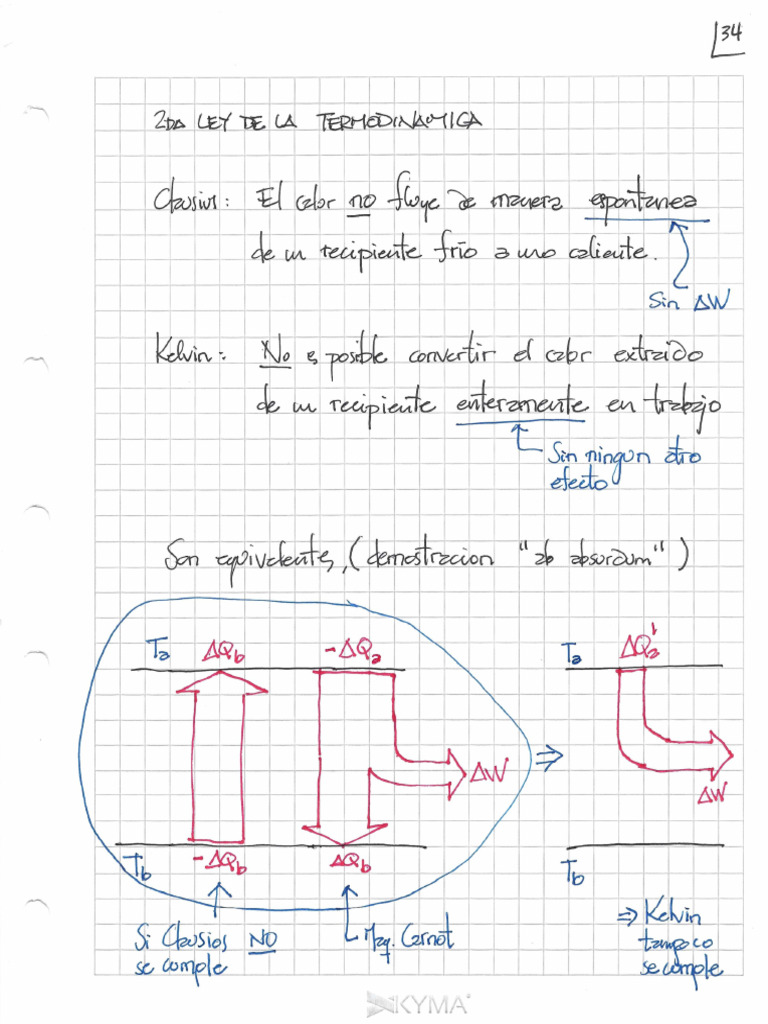 34
2DA LEY DE LA TERMODINAMICA
Clausius: El calor no fluye de manera espontanea
de un recipiente frio a uno caliente.
Sin ΔW
Kelvin: No es posible convertir el calor extraido
de un recipiente enteramente en trabajo
Sin ningun otro
efecto
Son equivalentes, (demostracion "ab absurdum")
Ta ΔQb -ΔQa
Ta ΔQa'
ΔW ⇒
ΔW
Tb -ΔQb ΔQb
Tb
Si Clausios NO
se cumple
Maq. Carnot
⇒ Kelvin
tampoco
se cumple
KYMA